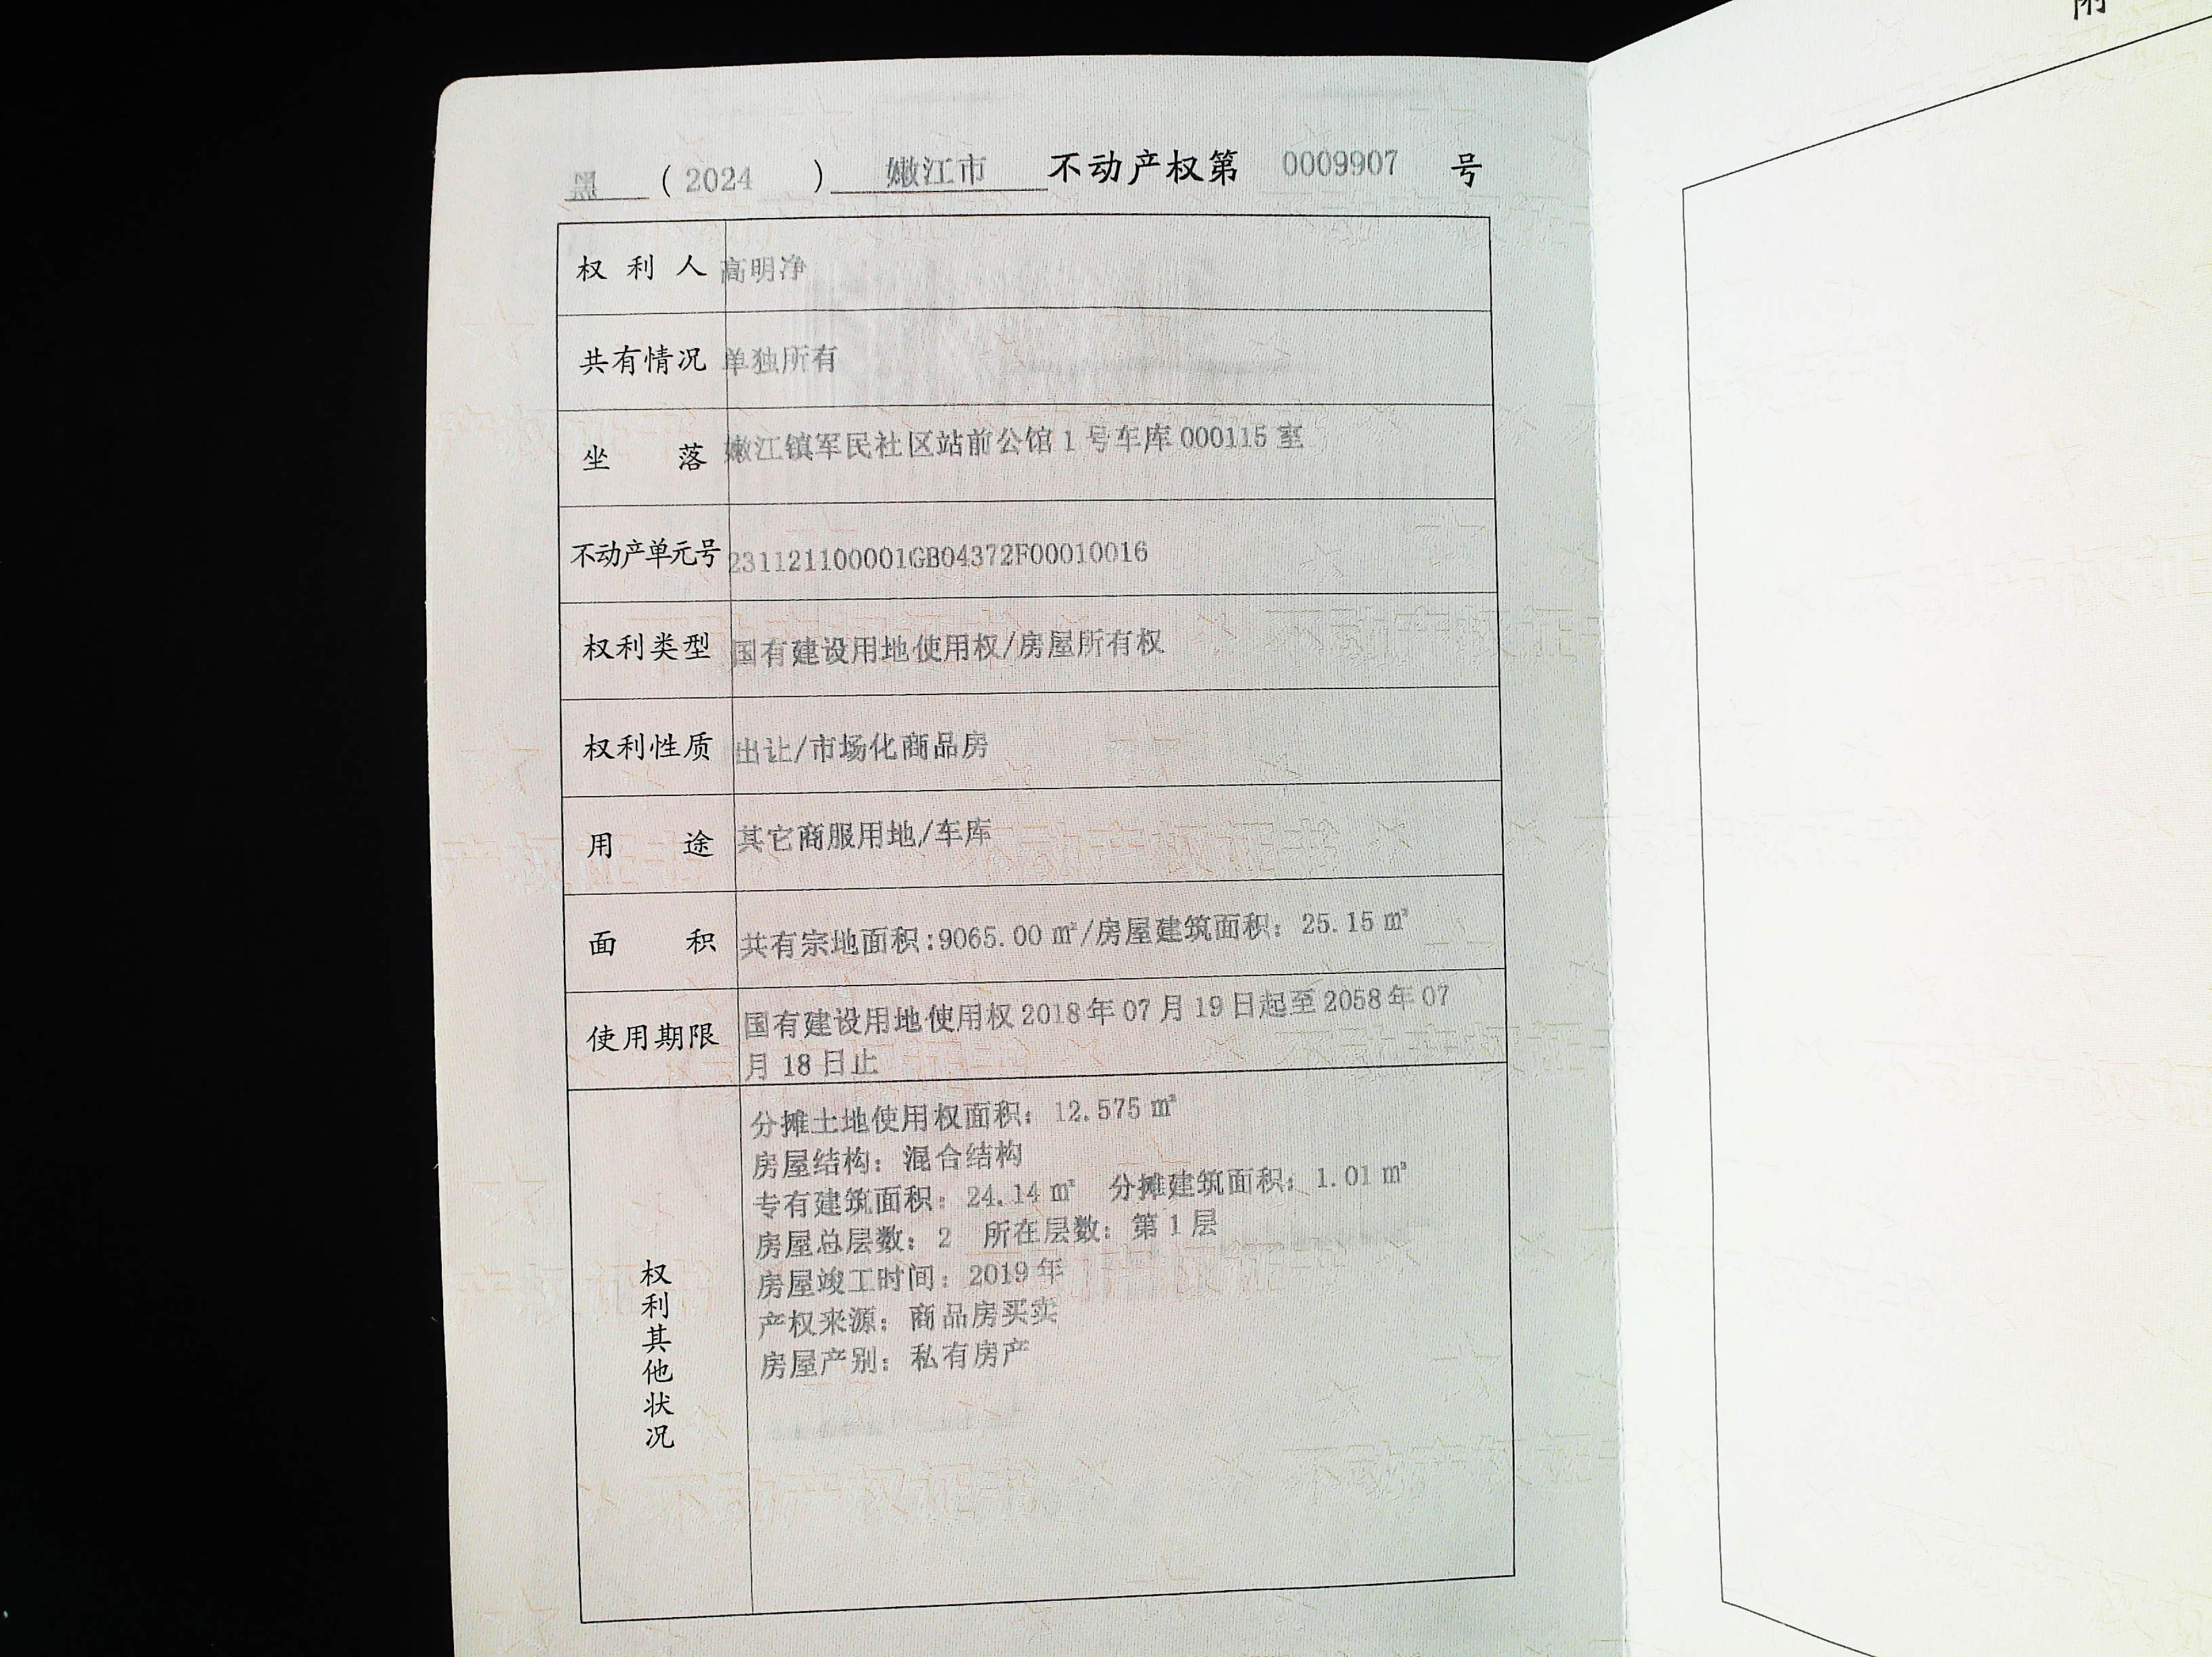 黑 (2024 ) 嫩江市 不动产权第 0009907 号
权利人 高明净
共有情况 单独所有
坐落 嫩江镇军民社区站前公馆1号车库000115室
不动产单元号 231121100001GB04372F00010016
权利类型 国有建设用地使用权/房屋所有权
权利性质 出让/市场化商品房
用途 其它商服用地/车库
面积 共有宗地面积:9065.00㎡/房屋建筑面积：25.15㎡
使用期限 国有建设用地使用权2018年07月19日起至2058年07
月18日止
权利其他状况
分摊土地使用权面积：12.575㎡
房屋结构：混合结构
专有建筑面积：24.14㎡ 分摊建筑面积：1.01㎡
房屋总层数：2 所在层数：第1层
房屋竣工时间：2019年
产权来源：商品房买卖
房屋产别：私有房产
附